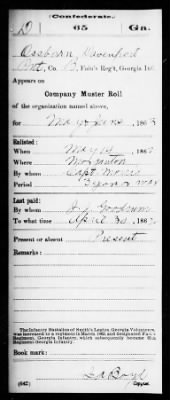 Confederate.
O 65 Ga.
Osborn, Davenport
Pvt, Co. B, Fain's Reg't, Georgia Inf.
Appears on
Company Muster Roll
of the organization named above,
for May & June, 1863
Enlisted:
When May 14, 186
Where Morganton
By whom Capt. Morris
Period 3 years or war
Last paid:
By whom
To what time April 30, 186
Present or absent Present
Remarks:
The Infantry Battalion of Smith's Legion, Georgia Volunteers,
was increased to a regiment in March, 1863, and designated
Regiment, Georgia Infantry, which subsequently became
Regiment Georgia Infantry.
Book mark:
(642) Copyist.